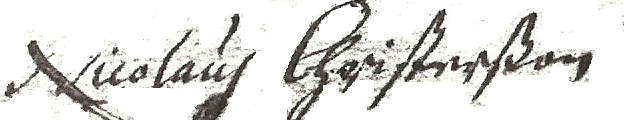 Nicolaus Christersson